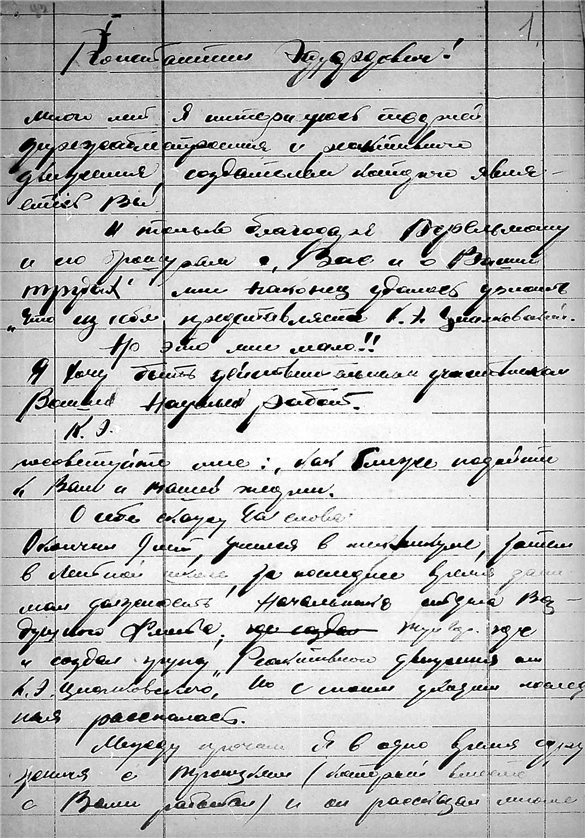 1.
Константин Эдуардович!
много лет я интересуюсь теорией
дирижаблестроения и реактивного
движения, создателем которого явля-
етесь Вы,
И только благодаря Перельману
и его брошурам о Вас и о Ваших
трудах мне наконец удалось узнать
„Что из себя представляет К. Э. Циолковский.
Но это мне мало!!
Я хочу быть действительным участником
Ваших научных работ.
К. Э.
посоветуйте мне: как ближе подойти
к Вам и Вашей жизни.
О себе скажу два слова:
Окончил, учился в техникуме, затем
в летной школе, за последнее время зани
мал должность Начальника отдела Воз-
душного Флота, где
и создал групу „Реактивного движения им
К. Э. Циолковского, Но с моим уходом послед
няя распалась.
Между прочим Я в одно время
с Троицким (который вместе
с Вами работал) и он рассказал многое